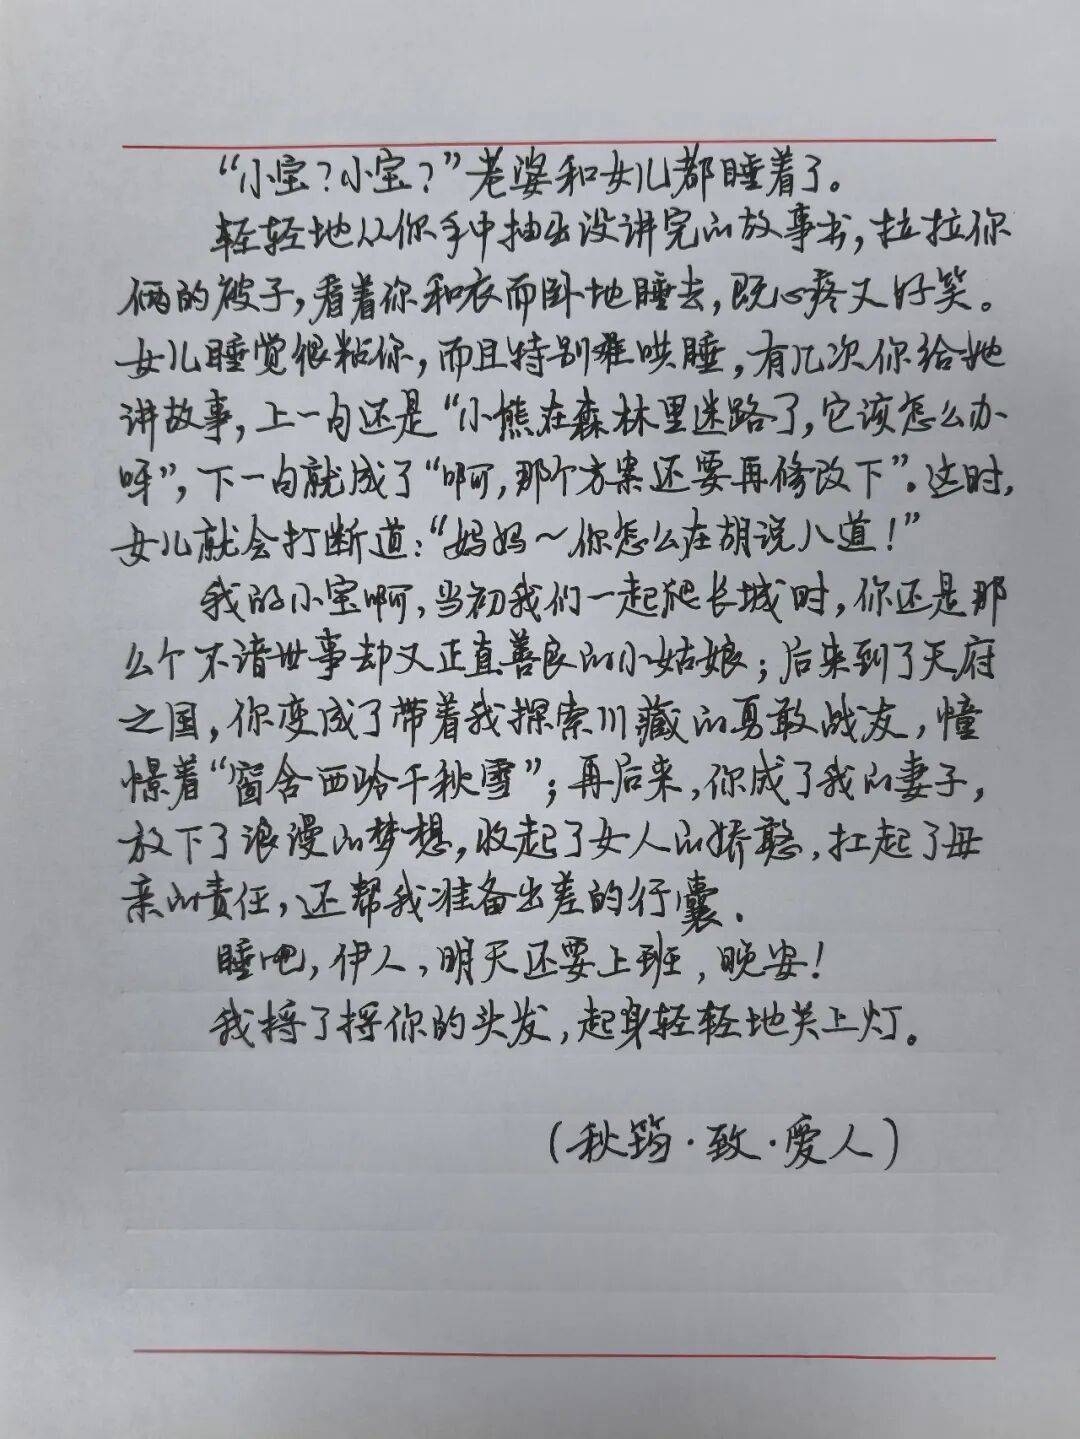 “小宝?小宝?”老婆和女儿都睡着了。
轻轻地从你手中抽出没讲完的故事书,拉拉你
俩的被子,看着你和衣而卧地睡去,既心疼又好笑。
女儿睡觉很粘你,而且特别难哄睡,有几次你给她
讲故事,上一句还是“小熊在森林里迷路了,它该怎么办
呀”,下一句就成了“啊,那个方案还要再修改下”。这时,
女儿就会打断道:“妈妈~你怎么在胡说八道!”
我的小宝啊,当初我们一起爬长城时,你还是那
么个不谙世事却又正直善良的小姑娘;后来到了天府
之国,你变成了带着我探索川藏的勇敢战友,憧
憬着“窗含西岭千秋雪”;再后来,你成了我的妻子,
放下了浪漫的梦想,收起了女人的娇憨,扛起了母
亲的责任,还帮我准备出差的行囊.
睡吧,伊人,明天还要上班,晚安!
我捋了捋你的头发,起身轻轻地关上灯。
(秋筠·致·爱人)